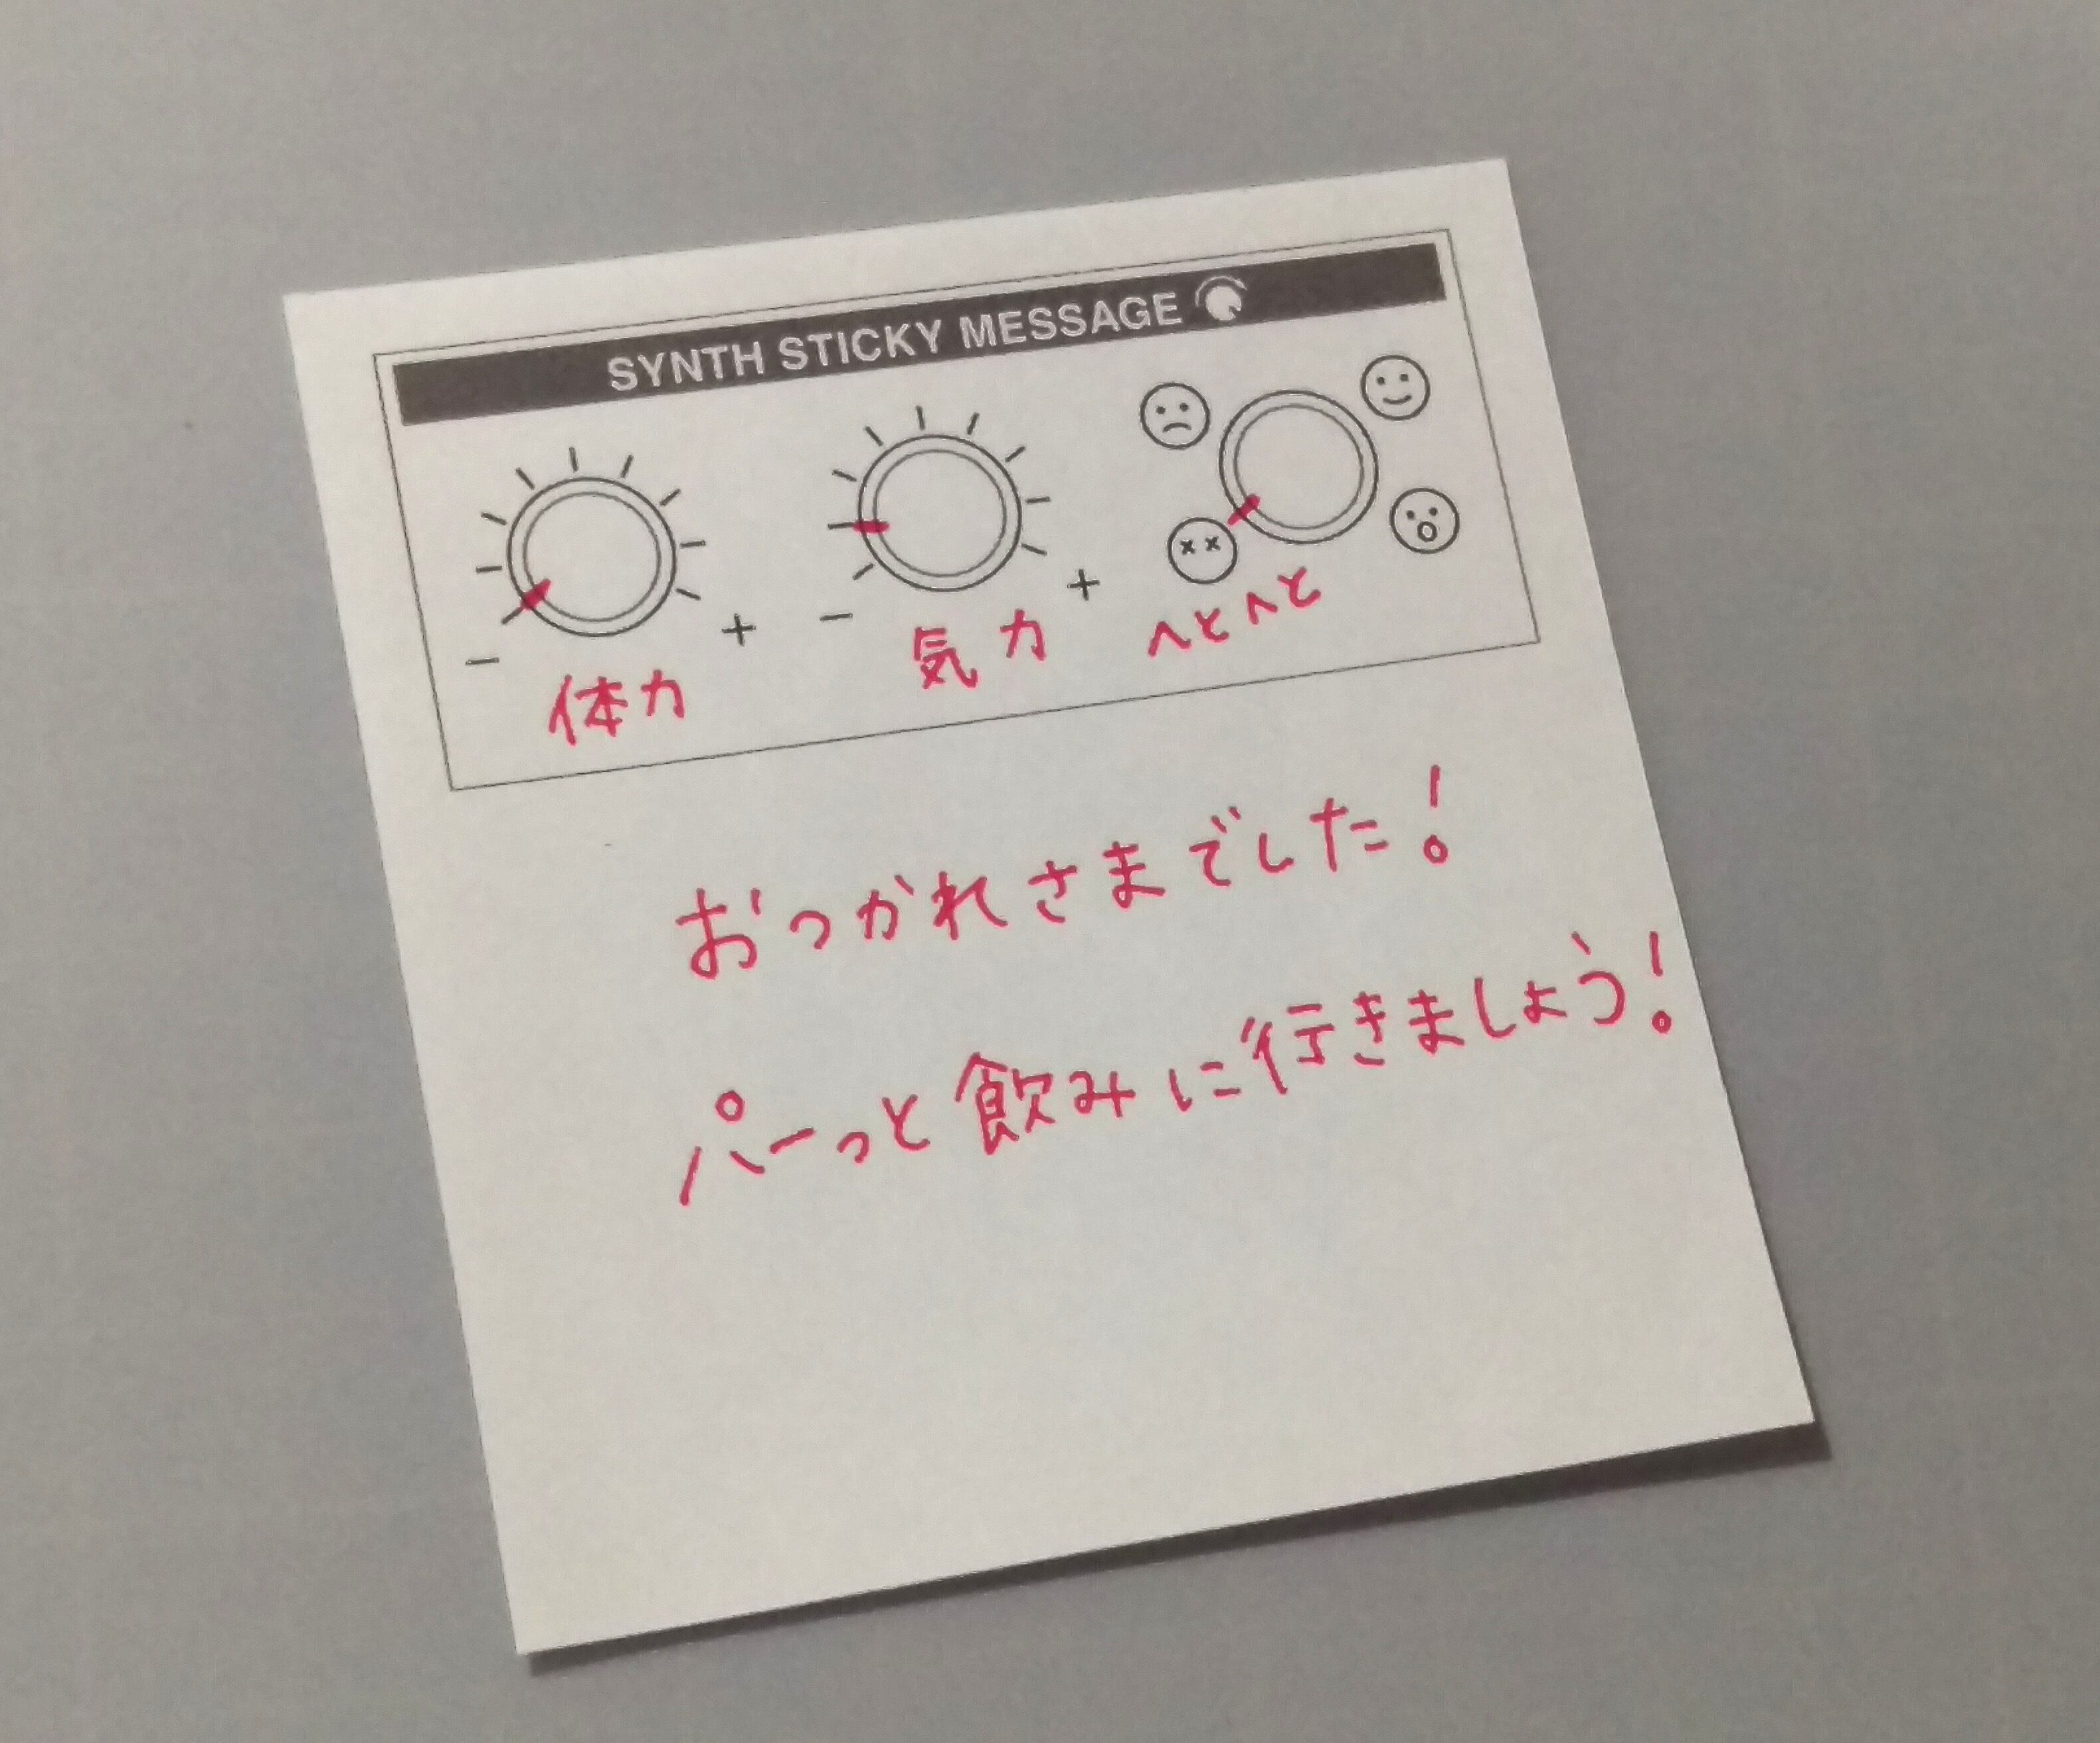 SYNTH STICKY MESSAGE
- + - +
体力 気力 へとへと
おつかれさまでした!
パーっと飲みに行きましょう!